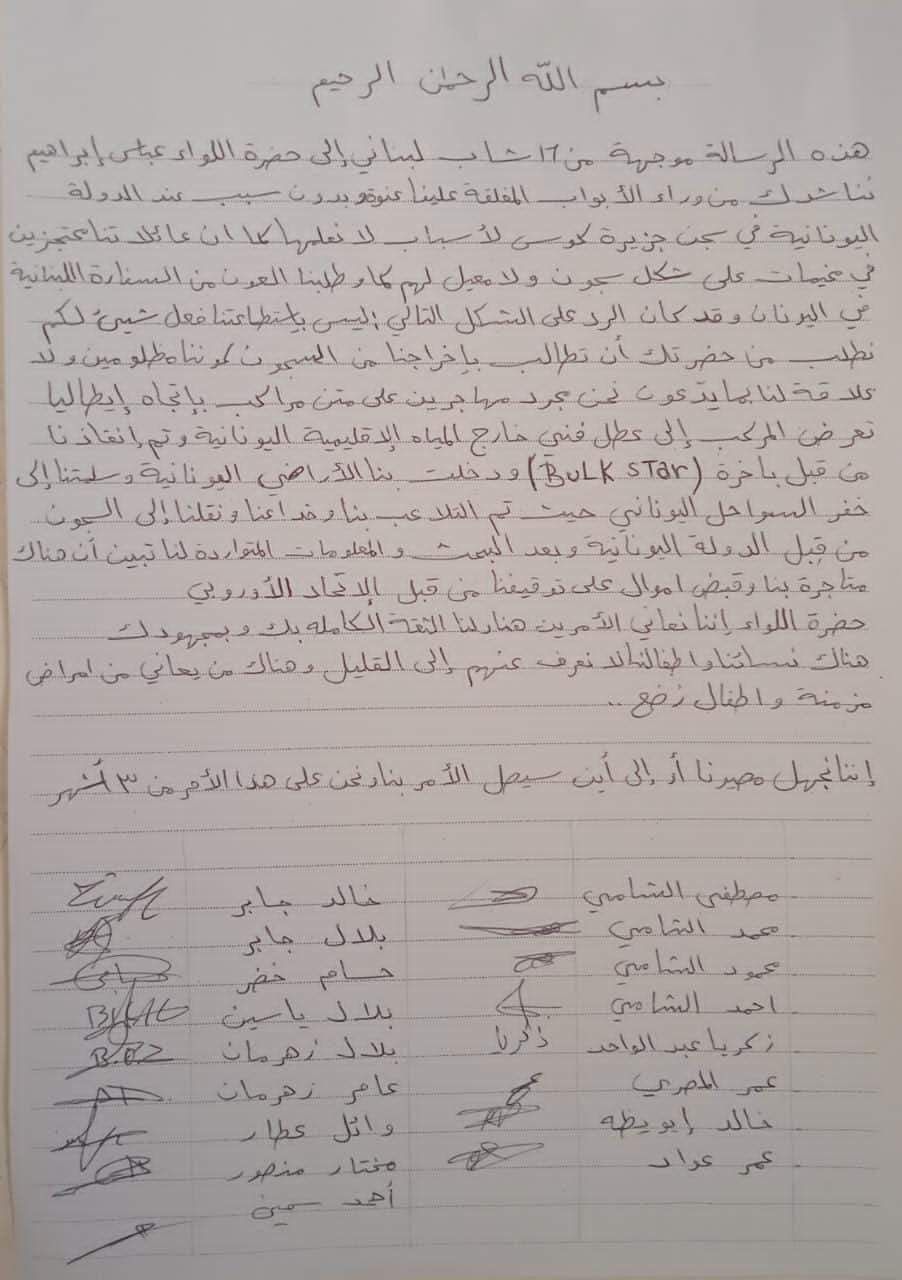 بسم الله الرحمان الرحيم
هذه الرسالة موجهة من 17 شاب لبناني إلى حضرة اللواء عباس إبراهيم
نناشدك من وراء الأبواب المغلقة علينا عنوة وبدون سبب عند الدولة
اليونانية في سجن جزيرة كوس لأسباب لا نعلمها كما ان عائلاتنا محتجزين
في مخيمات على شكل سجون ولا معيل لهم كما وطلبنا العون من السفارة اللبنانية
في اليونان وقد كان الرد على الشكل التالي: ليس بإستطاعتنا فعل شيئ لكم
نطلب من حضرتك أن تطالب بإخراجنا من السجون كوننا مظلومين ولا
علاقة لنا بما يدّعون نحن مجرد مهاجرين على متن مراكب بإتجاه إيطاليا
تعرض المركب إلى عطل فني خارج المياه الإقليمية اليونانية وتم إنقاذنا
من قبل باخرة (BULK STar) ودخلت بنا الأراضي اليونانية وسلمتنا إلى
خفر السواحل اليوناني حيث تم التلاعب بنا وخداعنا ونقلنا إلى السجون
من قبل الدولة اليونانية وبعد البحث والمعلومات المتواردة لنا تبين أن هناك
متاجرة بنا وقبض اموال على توقيفنا من قبل الإتحاد الأوروبي
حضرة اللواء إننا نعاني الأمرين هنا ولنا الثقة الكامله بك وبمجهودك
هناك نسائنا واطفالنا لا نعرف عنهم إلى القليل وهناك من يعاني من امراض
مزمنة واطفال رُضع ..
إننا نجهل مصيرنا أو إلى أين سيصل الأمر بنا ونحن على هذا الأمر من ٣ أشهر
مصطفى الشامي خالد جابر
محمد الشامي بلال جابر
محمود الشامي حسام خضر
احمد الشامي بلال ياسين
زكريا عبد الواحد زكريا بلال زهرمان
عمر المصري عمر عامر زهرمان
خالد ابو يطه وائل عطار
عمر عواد مختار منصور
أحمد سمين